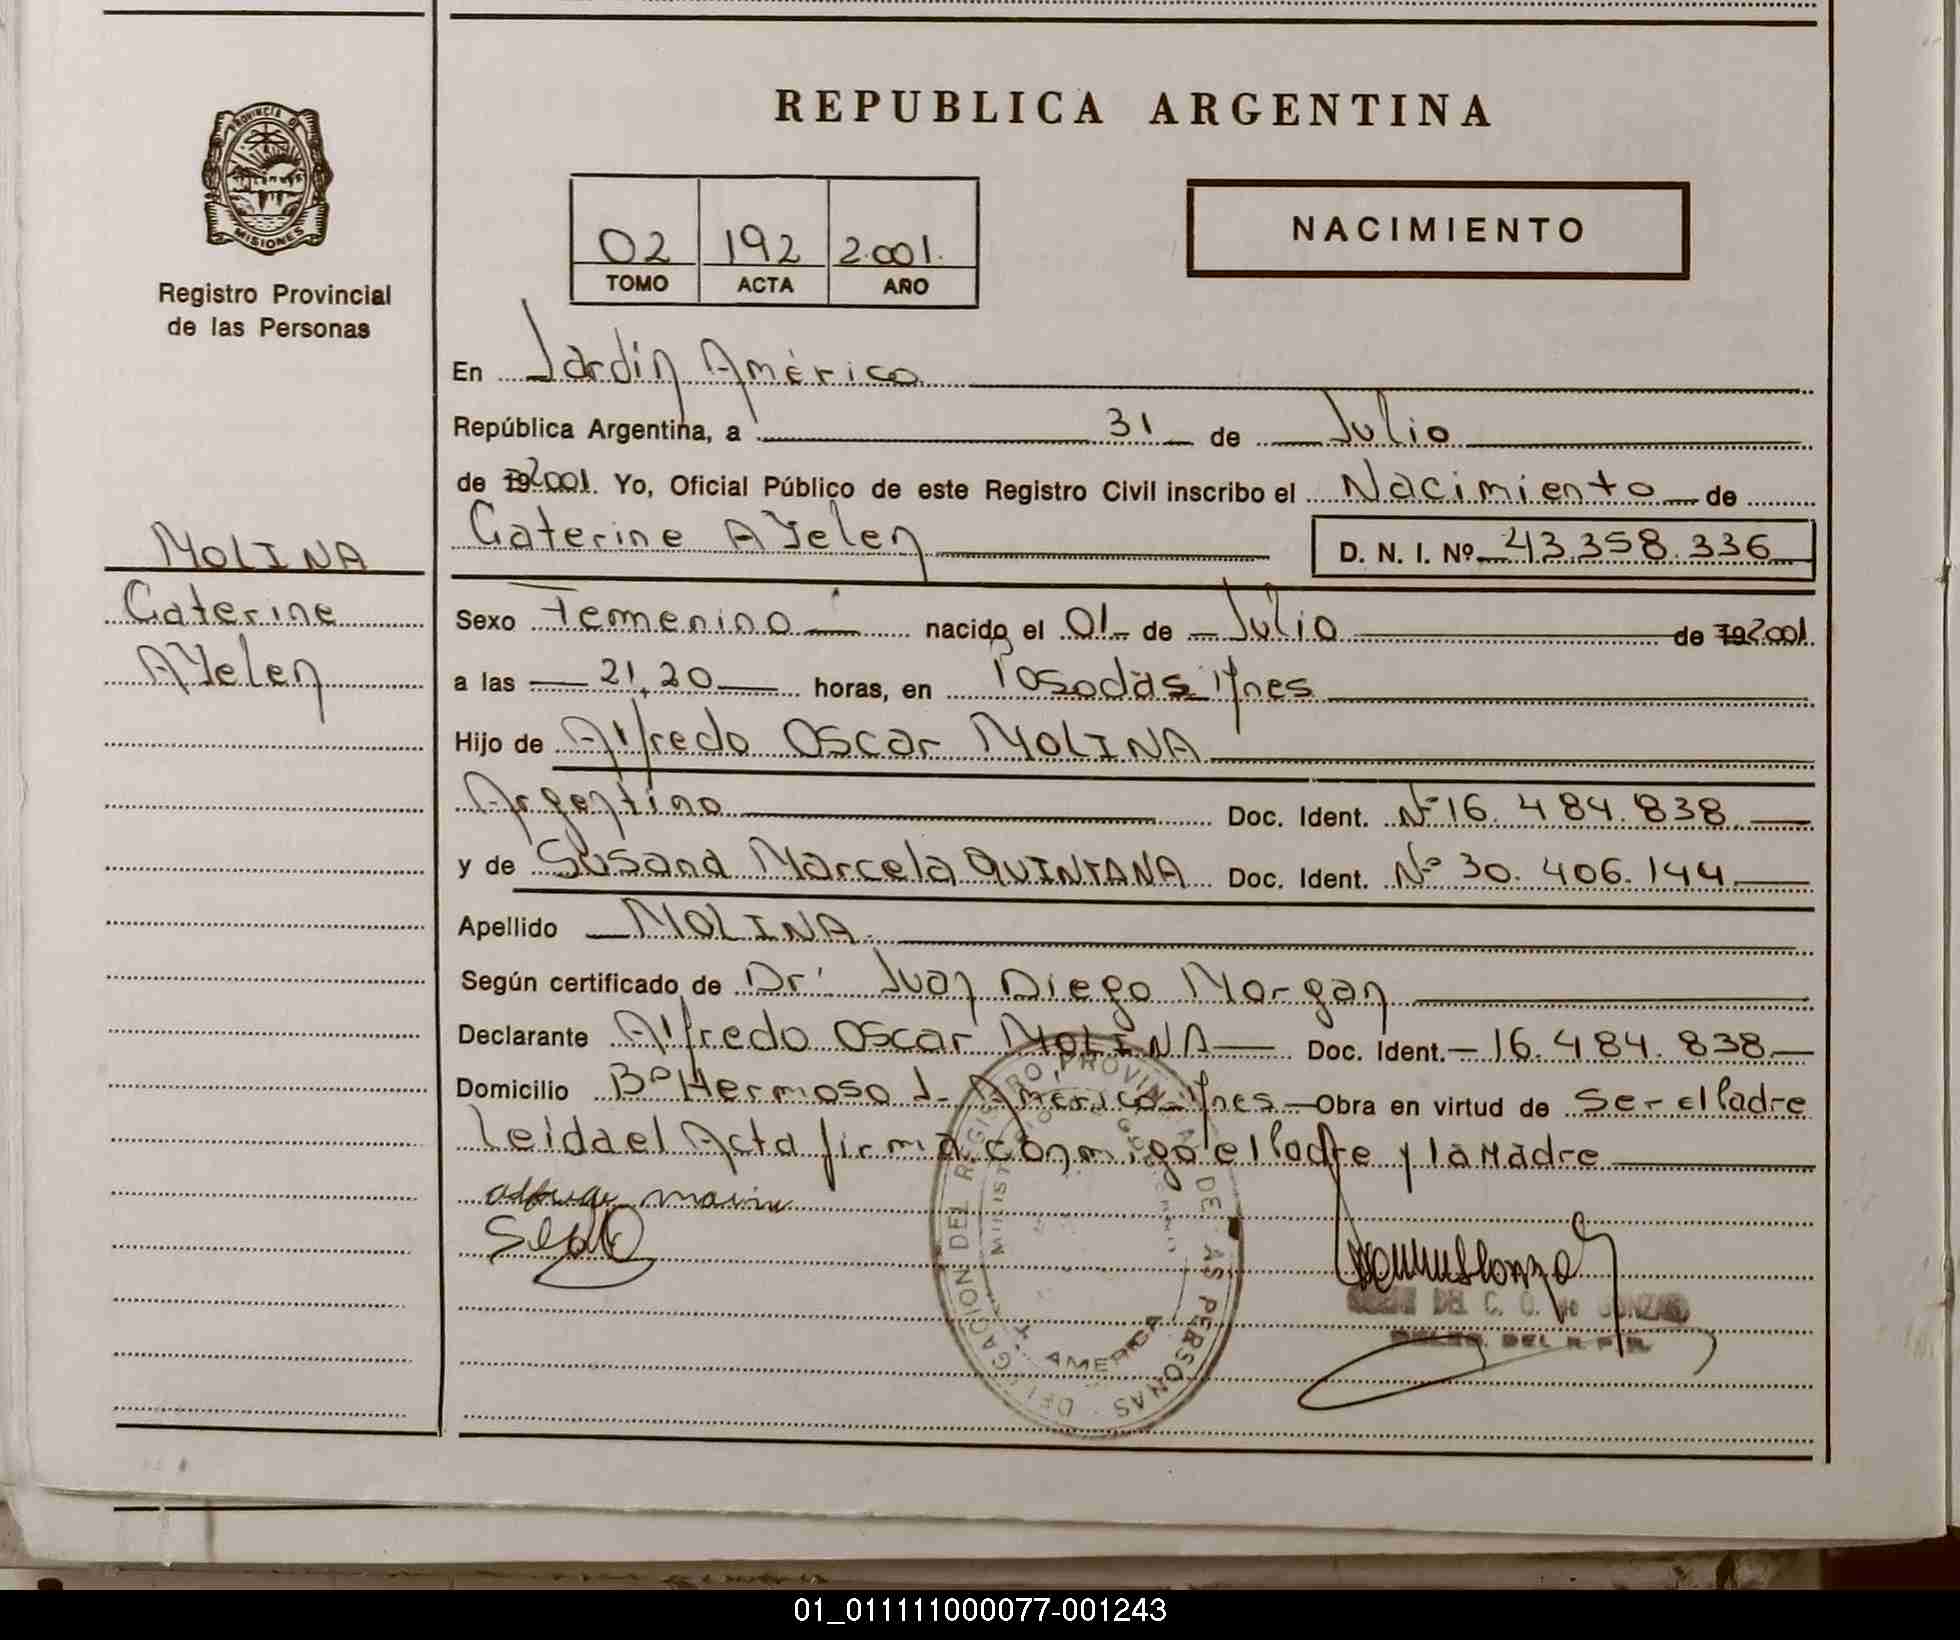 REPUBLICA ARGENTINA
PROVINCIA D
MISIONES
Registro Provincial
de las Personas
02 192 2.001.
TOMO ACTA AÑO
NACIMIENTO
En Jardín América
República Argentina, a 31 de Julio
de 192001. Yo, Oficial Público de este Registro Civil inscribo el Nacimiento de
Caterine AYelen D. N. I. Nº 43.358.336
MOLINA
Caterine
AYelen
Sexo Femenino nacido el 01 de Julio de 192001.
a las 21,20 horas, en Posadas Mnes
Hijo de Alfredo Oscar MOLINA
Argentino Doc. Ident. Nº 16.484.838
y de Susana Marcela QUINTANA Doc. Ident. Nº 30.406.144
Apellido MOLINA.
Según certificado de Dr. Juan Diego Morgan
Declarante Alfredo Oscar MOLINA Doc. Ident. 16.484.838
Domicilio Bº Hermoso J. América Mnes Obra en virtud de Ser el Padre
Leida el Acta firma conmigo el Padre y la Madre
DELEGACION DEL REGISTRO PROVINCIAL DE LAS PERSONAS
AMERICA
DEL C. G. de GONZALEZ
DELEG. DEL R.P.P.
01_011111000077-001243